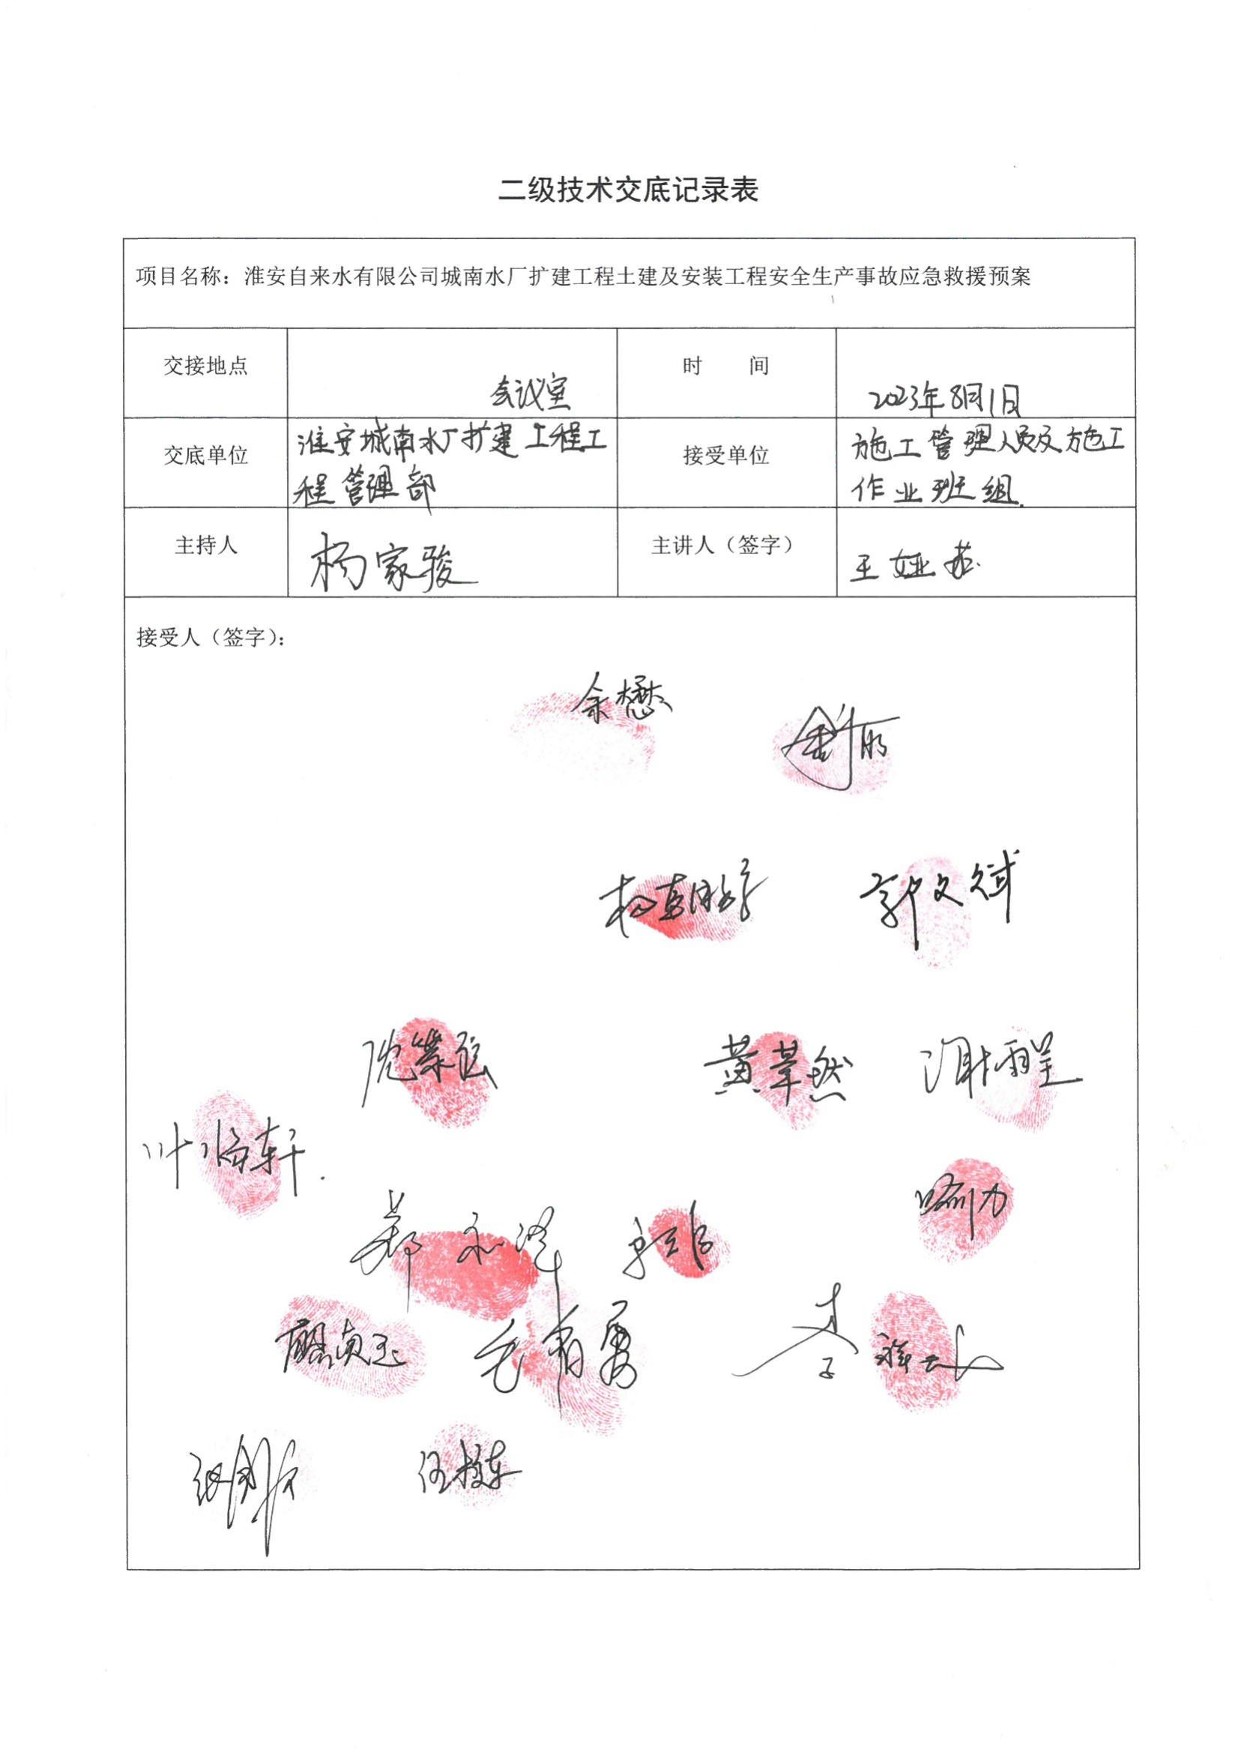 二级技术交底记录表
项目名称：淮安自来水有限公司城南水厂扩建工程土建及安装工程安全生产事故应急救援预案
交接地点
会议室
时 间
2023年8月1日
交底单位
淮安城南水厂扩建工程工
程管理部
接受单位
施工管理人员及施工
作业班组.
主持人
杨家骏
主讲人（签字）
王娅
接受人（签字）：
余懋
舒明
郭文斌
沈
黄莘然
谢雨呈
叶临轩.
喻力
郑永
贞玉
毛有勇
李
任拽东